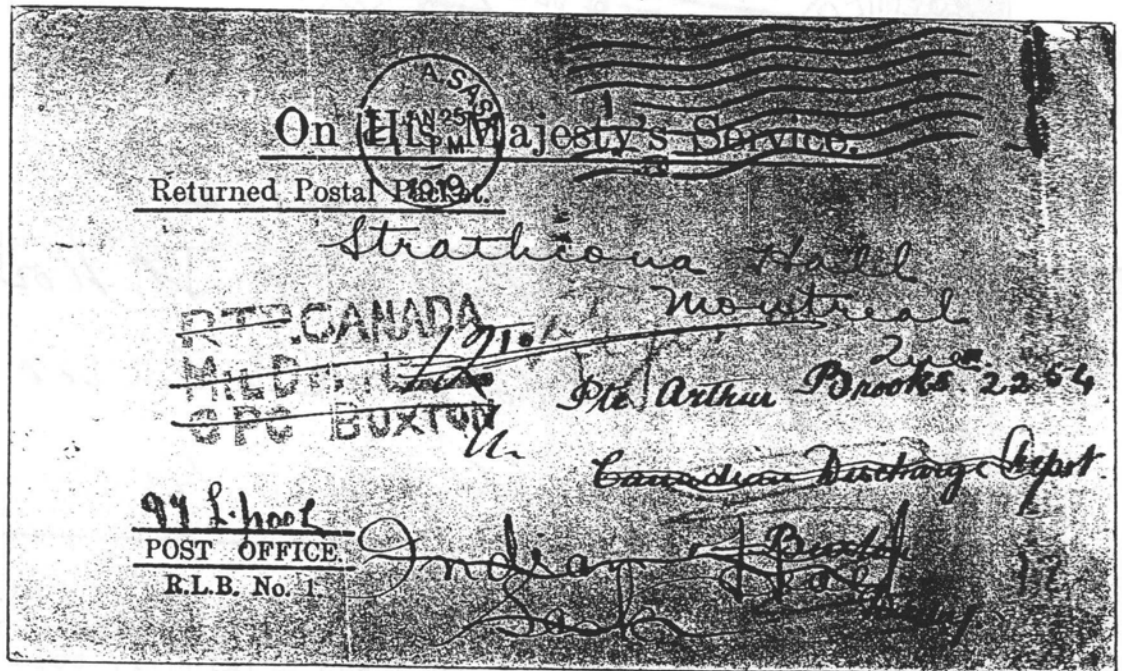 A. SASK
JAN 25
PM
1919
On His Majesty's Service.
Returned Postal Packet.
Strathcona Hall
Montreal
RTP. CANADA
MIL D
OPC BUXTON
Pte Arthur Brooks 2254
Canadian Discharge Depot.
Buxton
97 L.pool
POST OFFICE
R.L.B. No. 1
Indian Head
Sask